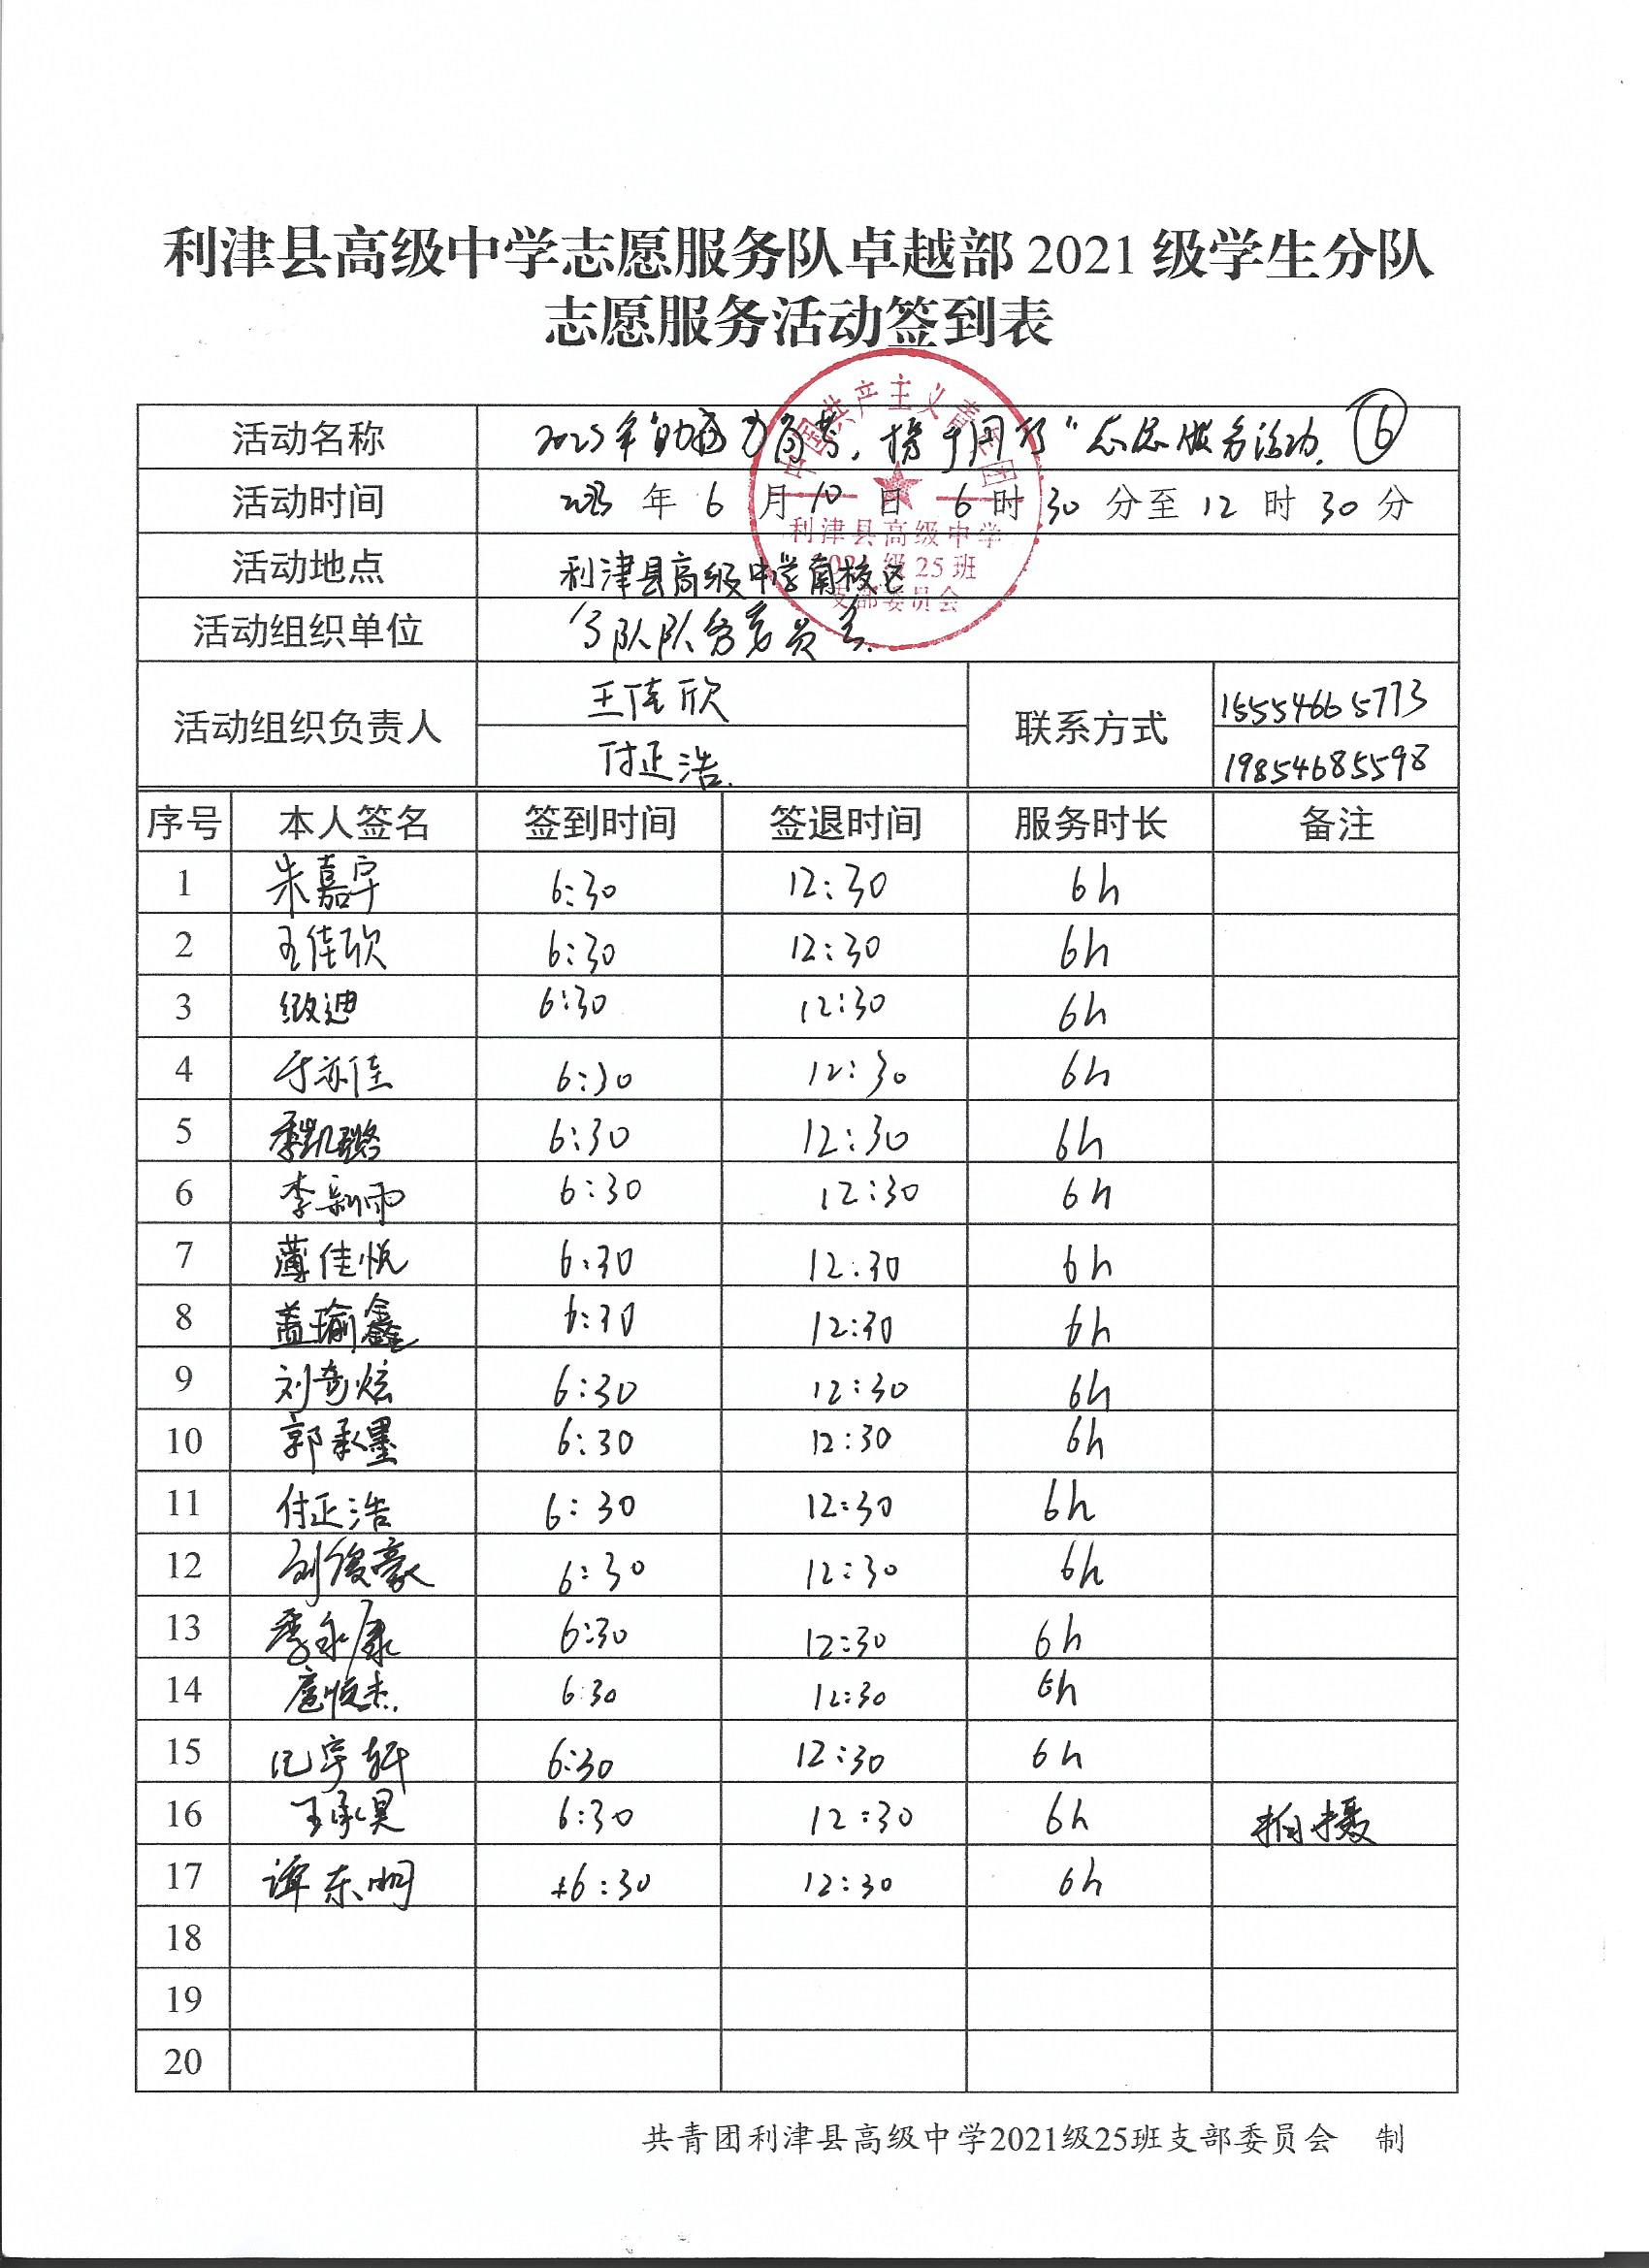 利津县高级中学志愿服务队卓越部 2021 级学生分队
志愿服务活动签到表
中国共产主义青年团
利津县高级中学
2021级25班
支部委员会
活动名称 2023年"助 高考，携手同行"志愿服务活动. ⑥
活动时间 2023 年 6 月 10 日 6 时 30 分至 12 时 30 分
活动地点 利津县高级中学南校区
活动组织单位 分队队务委员会.
活动组织负责人 王佳欣 联系方式 15554665773
付正浩. 19854685598
序号 本人签名 签到时间 签退时间 服务时长 备注
1 朱嘉宇 6:30 12:30 6h
2 王佳欣 6:30 12:30 6h
3 缑迪 6:30 12:30 6h
4 于亦佳 6:30 12:30 6h
5 季凯璐 6:30 12:30 6h
6 李新雨 6:30 12:30 6h
7 薄佳悦 6:30 12:30 6h
8 盖瑜鑫 6:30 12:30 6h
9 刘奇炫 6:30 12:30 6h
10 郭承墨 6:30 12:30 6h
11 付正浩 6:30 12:30 6h
12 刘俊豪 6:30 12:30 6h
13 季永康 6:30 12:30 6h
14 扈 杰. 6:30 12:30 6h
15 宇轩 6:30 12:30 6h
16 王承昊 6:30 12:30 6h 拍摄
17 谭东明 6:30 12:30 6h
18
19
20
共青团利津县高级中学2021级25班支部委员会 制